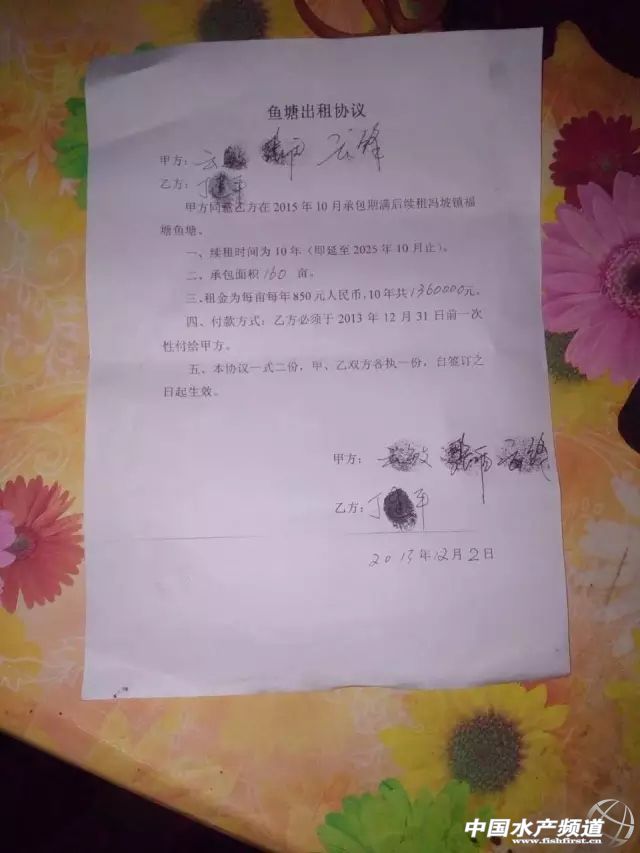 鱼塘出租协议
甲方：
乙方：丁建平
甲方同意乙方在2015年10月承包期满后续租冯坡镇福
塘鱼塘。
一、续租时间为10年（即延至2025年10月止）。
二、承包面积160亩。
三、租金为每亩每年850元人民币，10年共1360000元。
四、付款方式：乙方必须于2013年12月31日前一次
性付给甲方。
五、本协议一式二份，甲、乙双方各执一份，自签订之
日起生效。
甲方：
乙方：丁建平
2013年12月2日
中国水产频道
www.fishfirst.cn